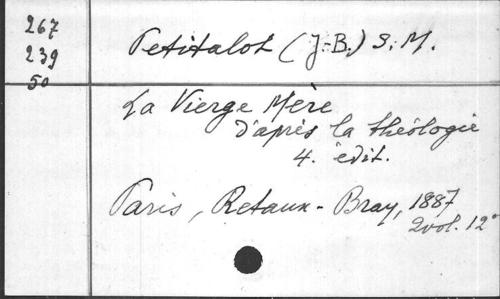 267
239
50
Petitalot (J.-B.) S. M.
La Vierge Mère
d'après la théologie
4. édit.
Paris, Retaux-Bray, 1887
2 vol. 12°